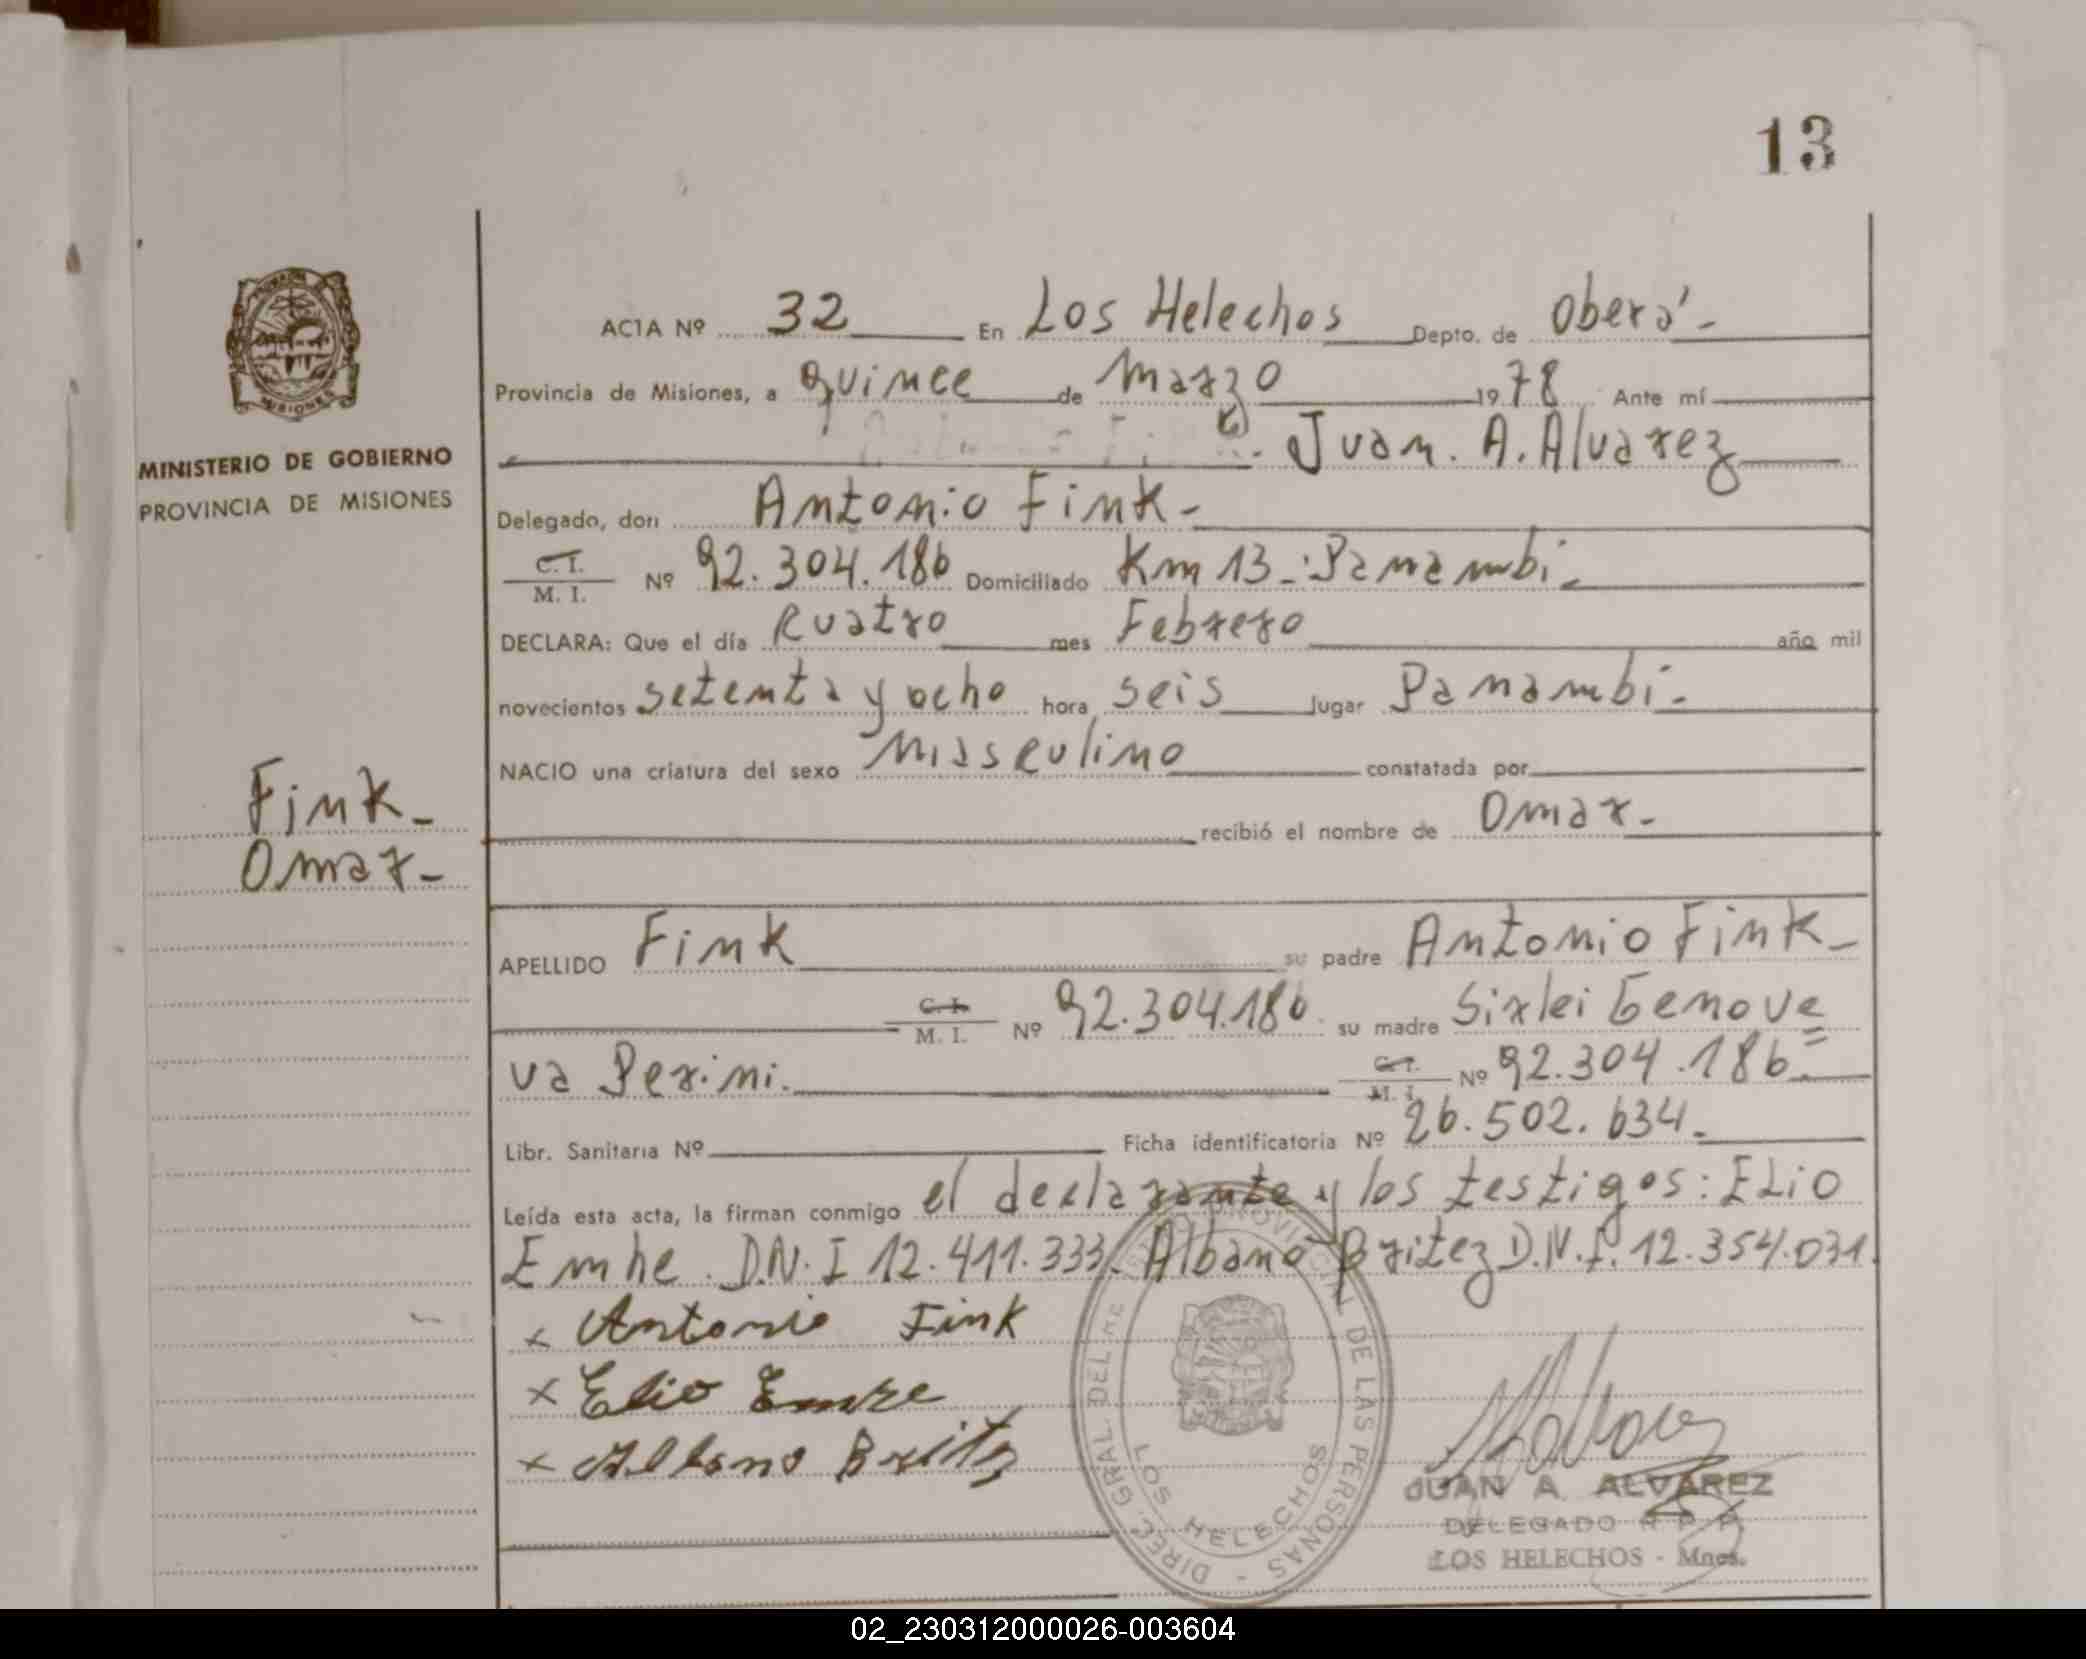 13
MISIONES
MINISTERIO DE GOBIERNO
PROVINCIA DE MISIONES
Fink-
Omar-
ACTA Nº 32 En Los Helechos Depto. de Oberá-
Provincia de Misiones, a quince de marzo 1978 Ante mí
Juan. A. Alvarez
Delegado, don Antonio Fink-
C. I.
M. I. Nº 92.304.186 Domiciliado Km 13-Panambi-
DECLARA: Que el día Cuatro mes Febrero año mil
novecientos setenta y ocho hora seis lugar Panambi-
NACIO una criatura del sexo Masculino constatada por
recibió el nombre de Omar-
APELLIDO Fink su padre Antonio Fink-
C. I.
M. I. Nº 92.304.186 su madre Sirlei Genove=
va Perini. C. I.
M. I. Nº 92.304.186-
Libr. Sanitaria Nº Ficha identificatoria Nº 26.502.634-
Leída esta acta, la firman conmigo el declarante y los testigos: Elio
Emhe. D.N.I 12.411.333. Albano Britez D.N.I. 12.354.031.
x Antonio Fink
x Elio Emhe
x Albano Britez
LOS HELECHOS
JUAN A. ALVAREZ
DELEGADO R P P
LOS HELECHOS - Mnes.
02_230312000026-003604